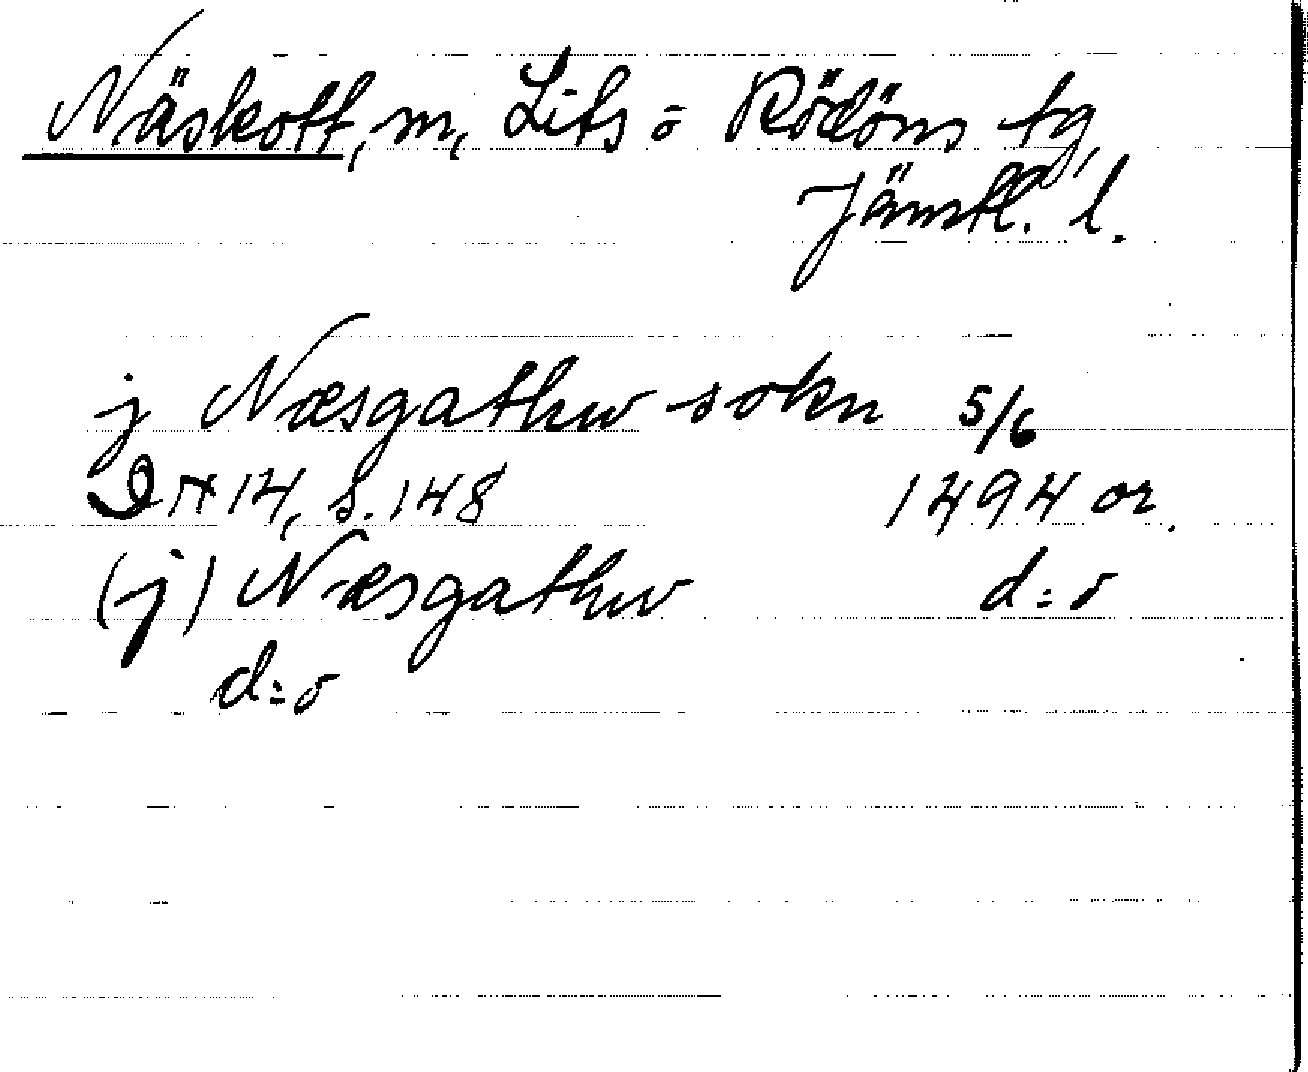 Näskott, m, Lits o Rödöns tg,
Jämtl. l.
j Næsgathw sokn 5/6
DN 14, s. 148 1494 or.
(j) Næsgathw d:o
d:o